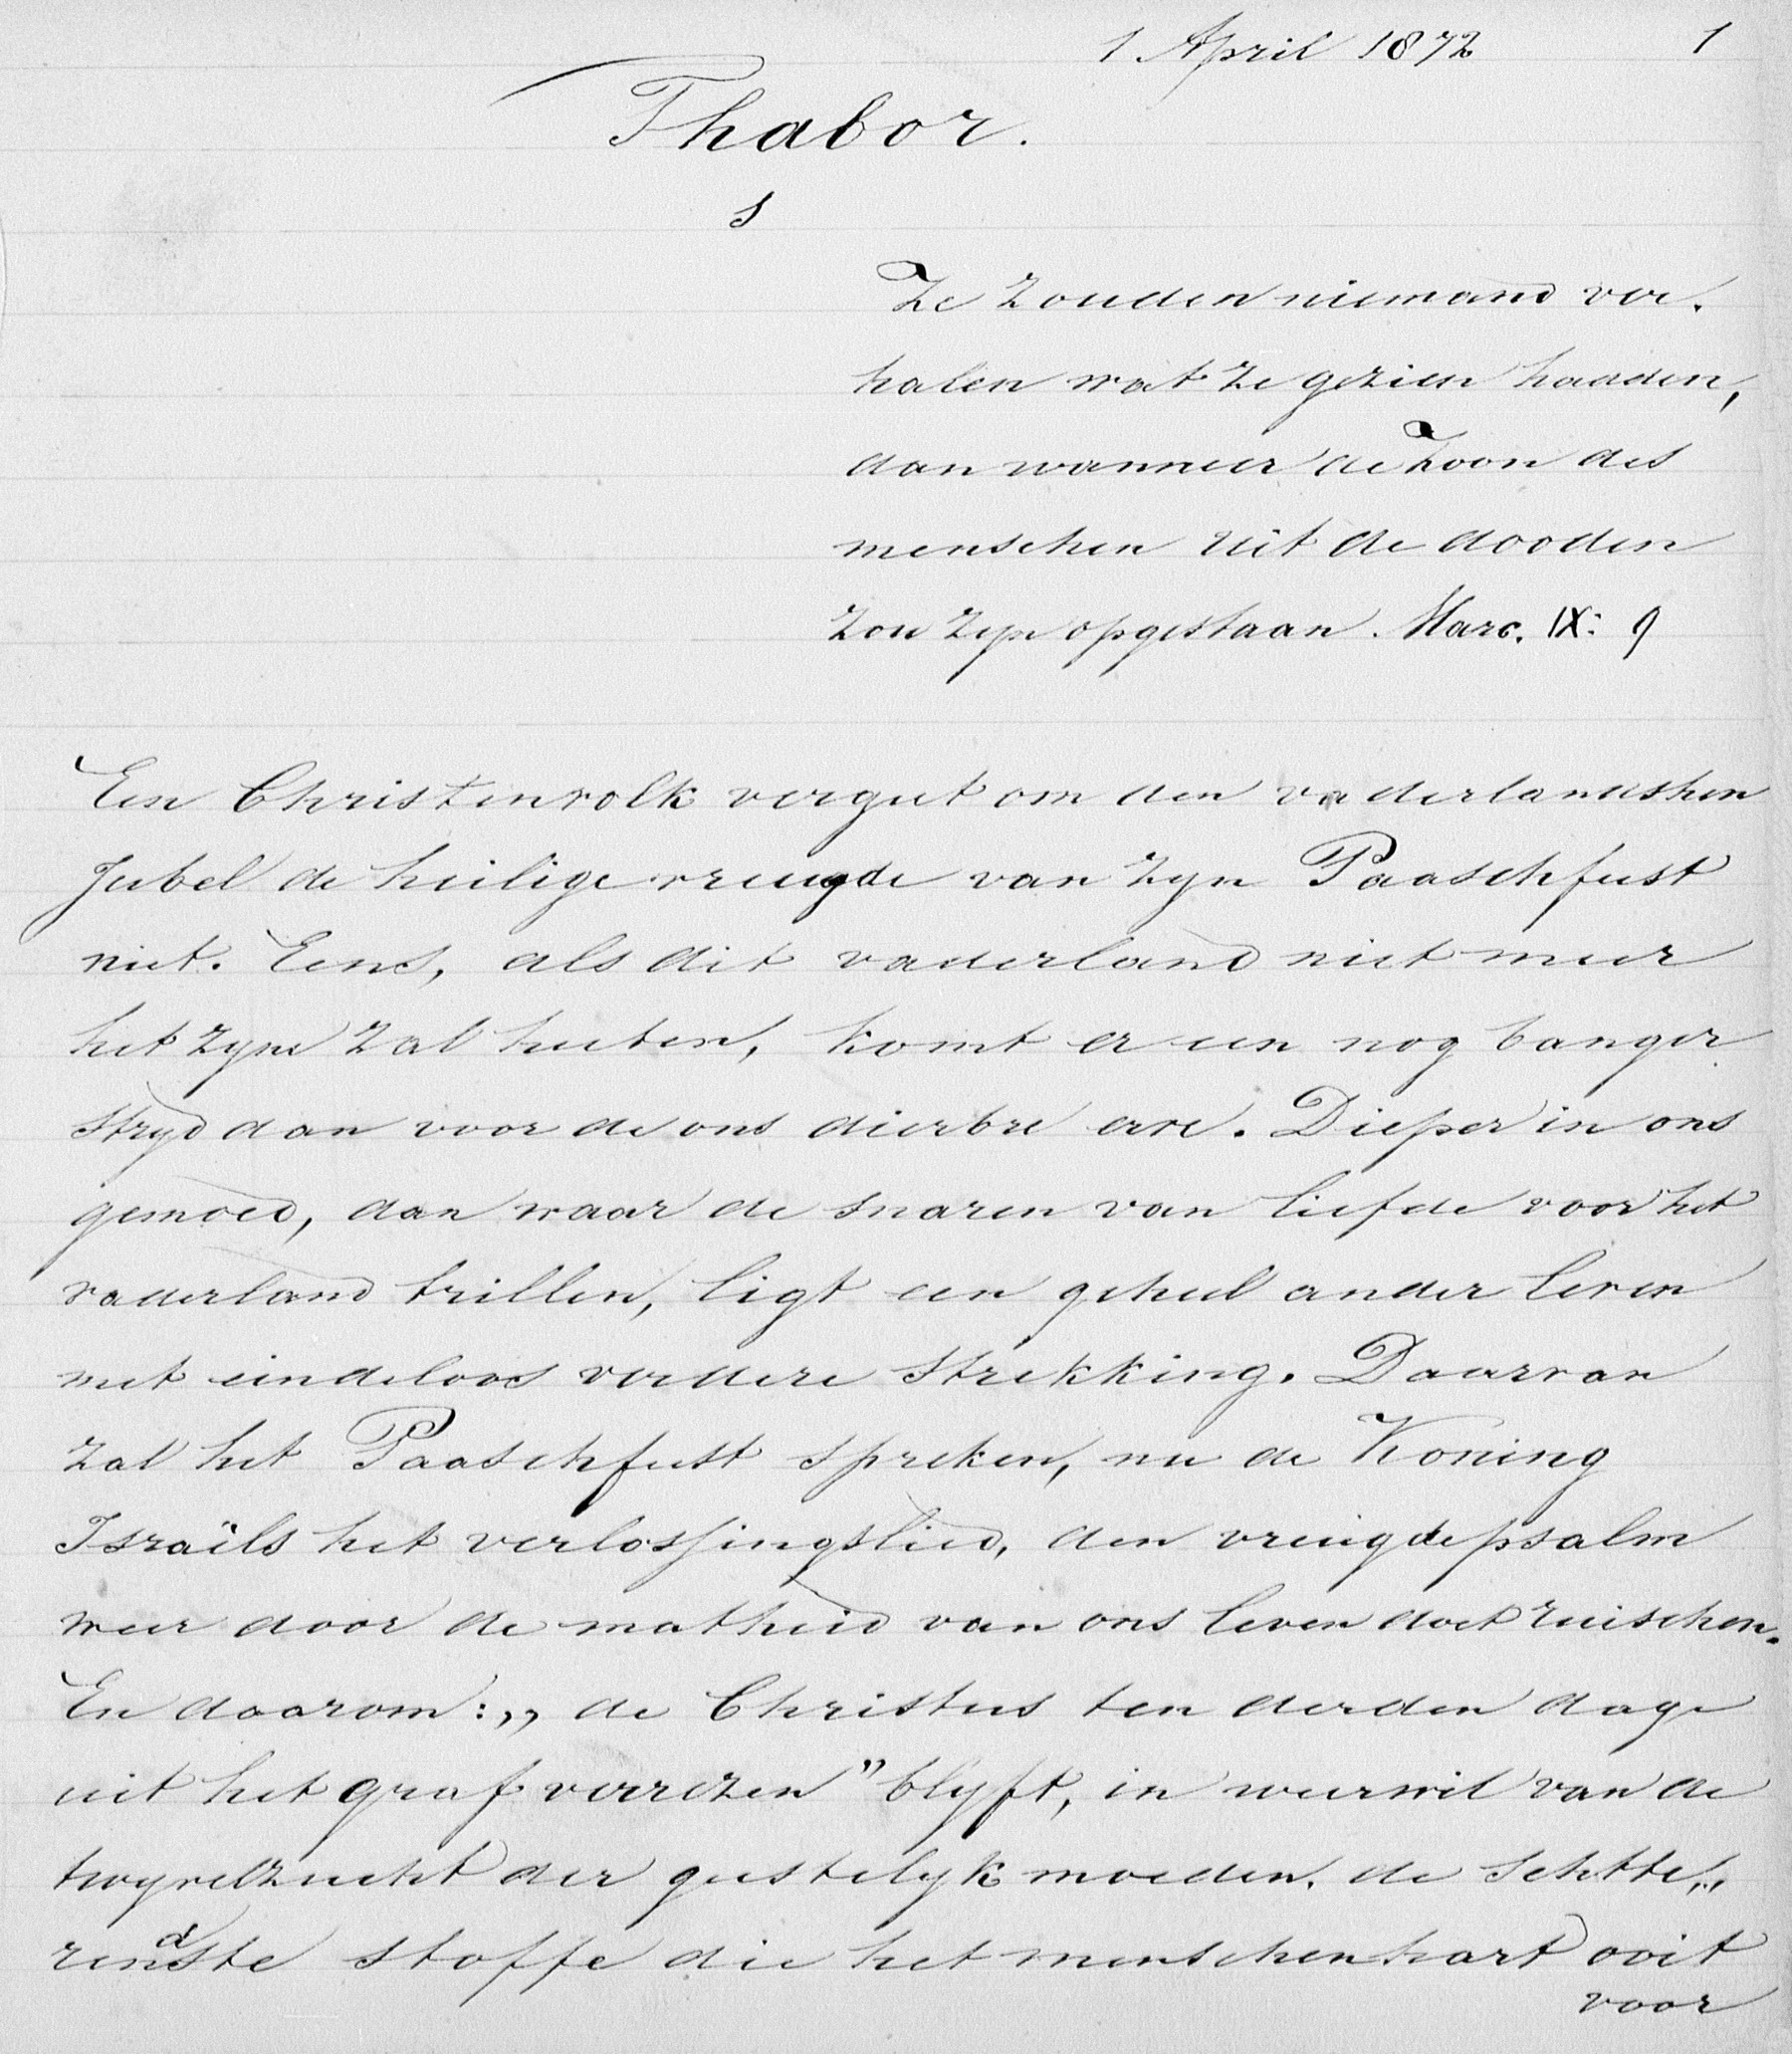 1 April 1872 1
Thabor.
s
Ze zouden niemand ver.
halen wat ze gezien hadden,
dan wanneer de Zoon des
menschen uit de dooden
zou zyn opgestaan. Marc. IX: 9
Een Christenvolk vergeet om den vaderlandshen
jubel de heilige vreugde van zyn Paaschfeest
niet. Eens, als dit vaderland niet meer
het zyne zal heeten, komt er een nog banger
stryd dan voor de ons dierbre erve. Dieper in ons
gemoed, dan waar de snaren van liefde voor het
vaderland trillen, ligt een geheel ander leven
met eindeloos verdere strekking. Daarvan
zal het Paaschfeest spreken, nu de Koning
Israëls het verlossingslied, den vreugdepsalm
weer door de matheid van ons leven doet ruischen.
En daarom: „ de Christus ten derden dage
uit het graf verrezen" blyft, in weerwil van de
twyvelzucht der geestelyk moeden, de schtte„
rendste stoffe die het menschenhart ooit
voor